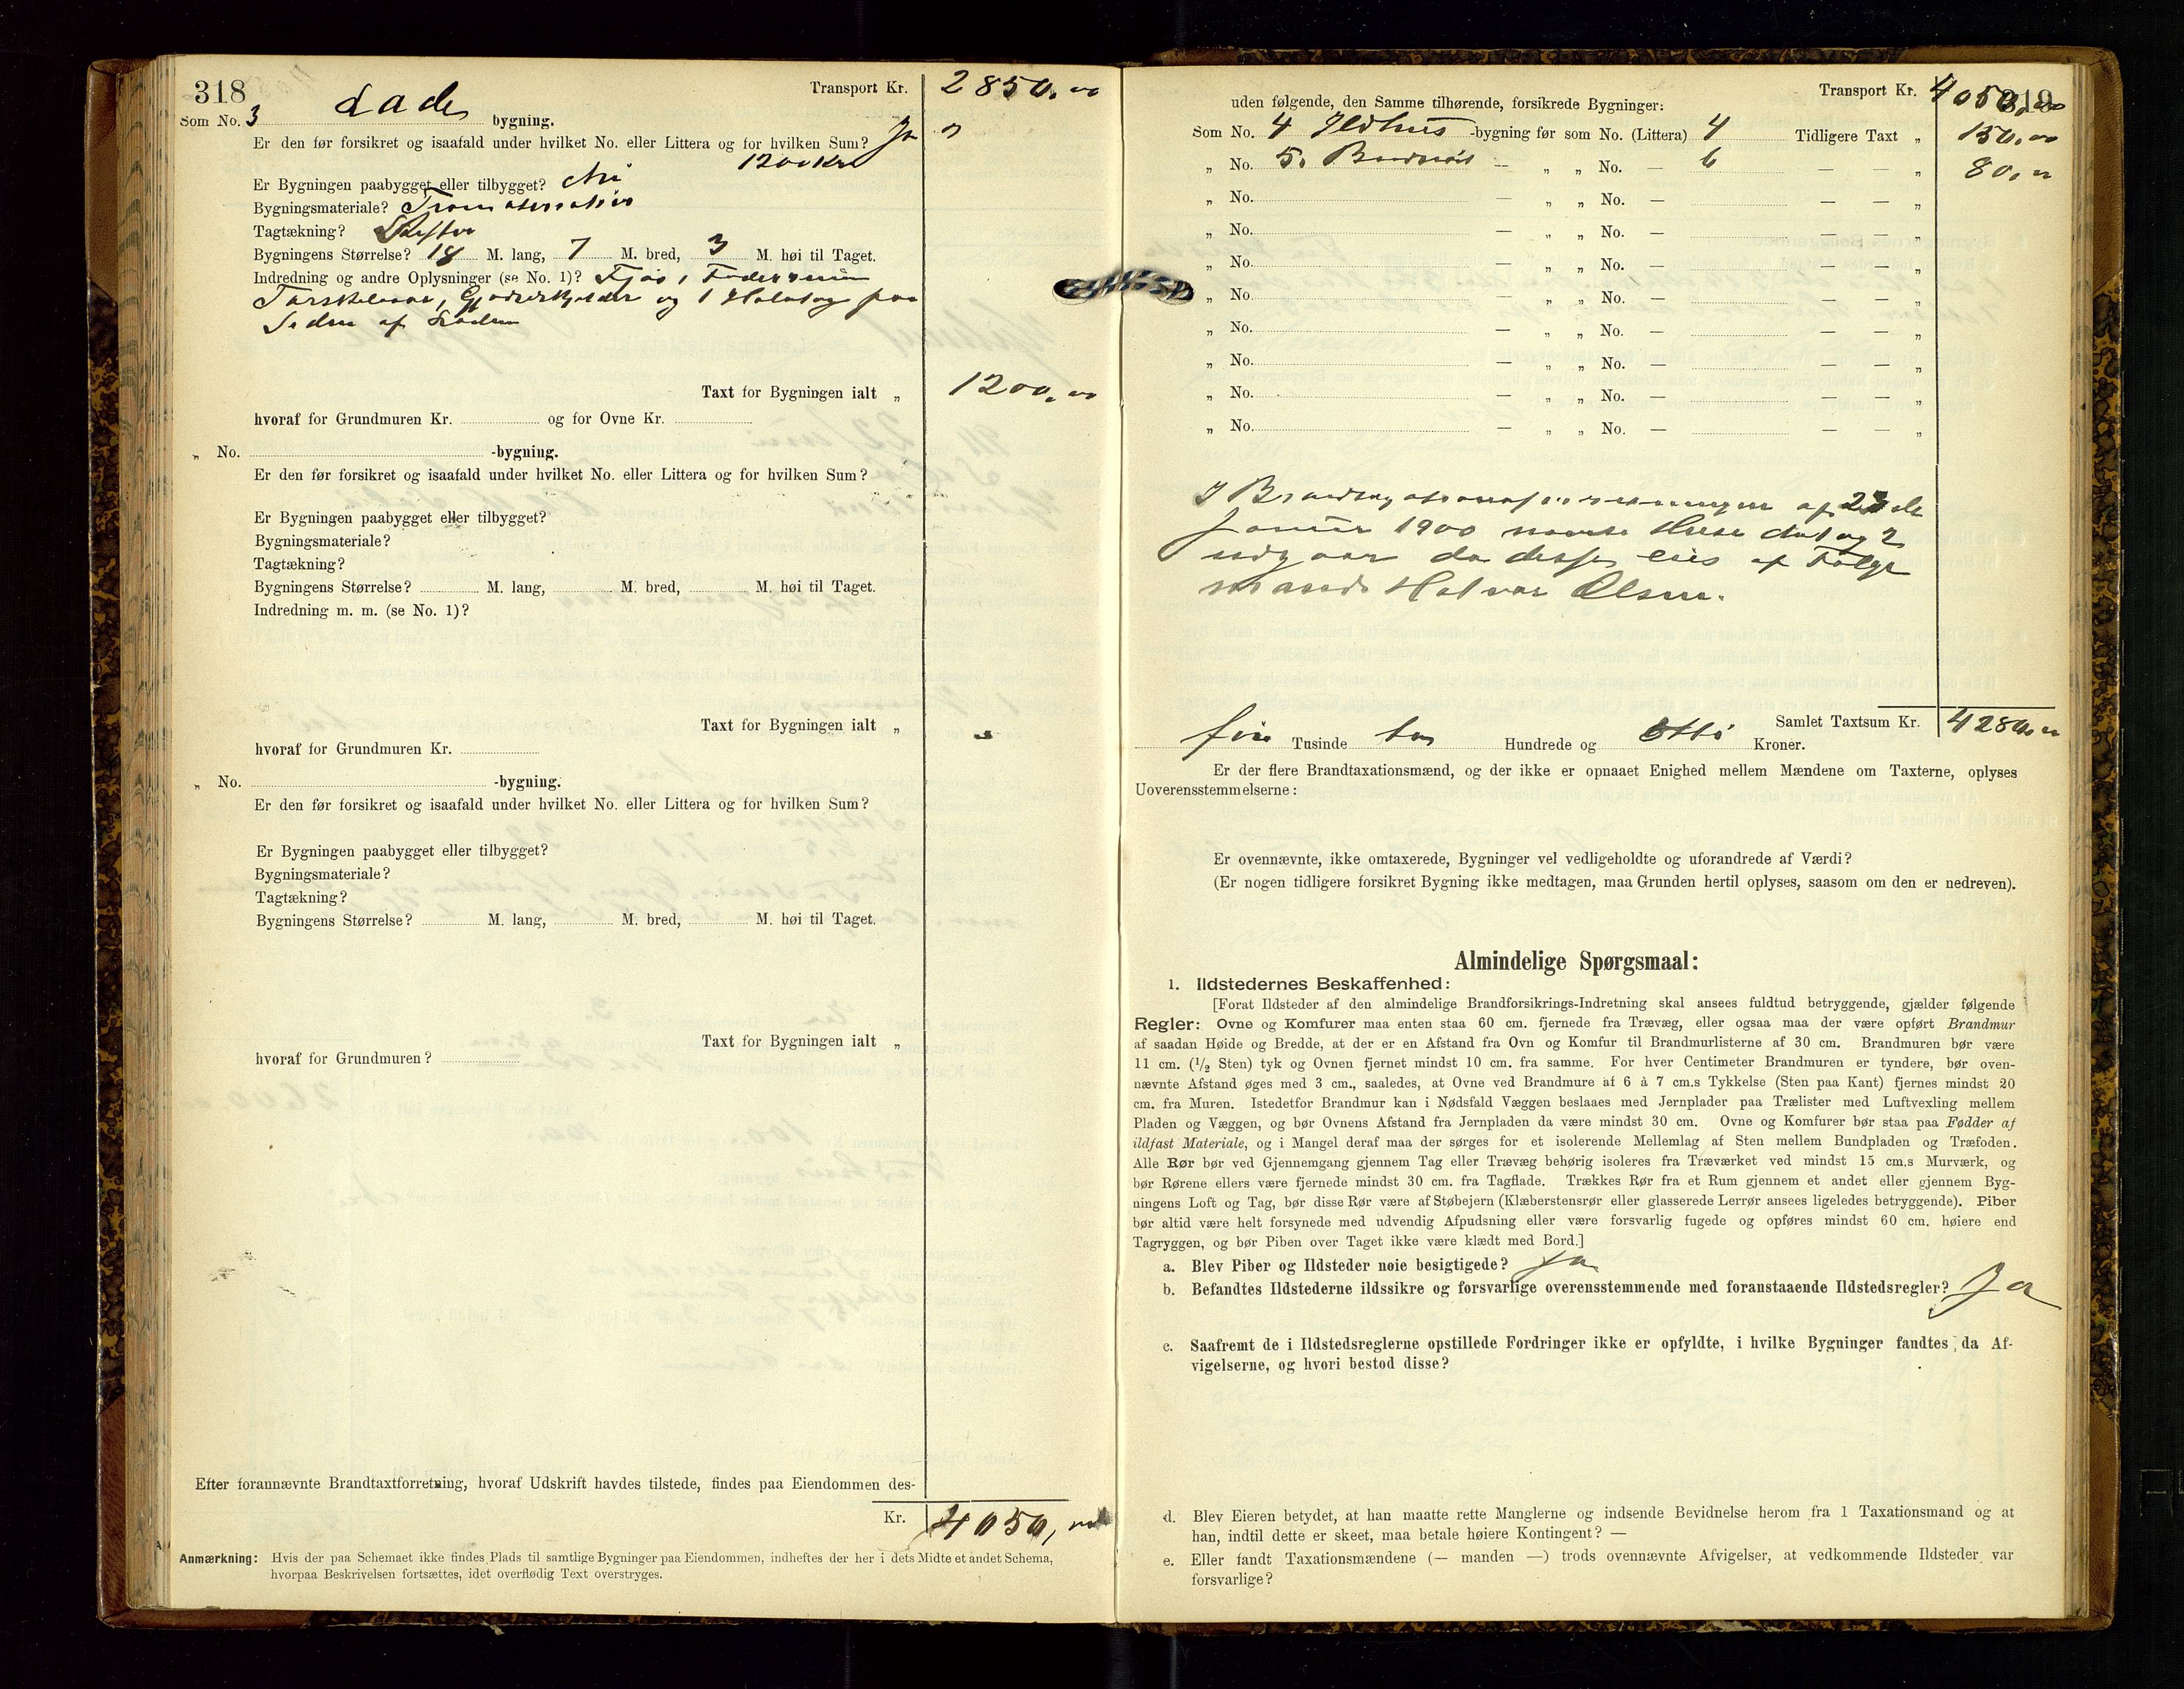 318
Transport Kr. 2850,00
Som No. 3 Lade bygning.
Er den før forsikret og isaafald under hvilket No. eller Littera og for hvilken Sum? Ja
1200 Kr
Er Bygningen paabygget eller tilbygget? Nei
Bygningsmateriale?
Tagtækning? Skifer
Bygningens Størrelse? 18 M. lang, 7 M. bred, 3 M. høi til Taget.
Indredning og andre Oplysninger (se No. 1)? Fjøs, Foderrum
og 1 paa
Siden af Laden
Taxt for Bygningen ialt „ 1200,00
hvoraf for Grundmuren Kr. og for Ovne Kr.
„ No. -bygning.
Er den før forsikret og isaafald under hvilket No. eller Littera og for hvilken Sum?
Er Bygningen paabygget eller tilbygget?
Bygningsmateriale?
Tagtækning?
Bygningens Størrelse? M. lang, M. bred, M. høi til Taget.
Indredning m. m. (se No. 1)?
Taxt for Bygningen ialt „
hvoraf for Grundmuren Kr.
„ No. -bygning.
Er den før forsikret og isaafald under hvilket No. eller Littera og for hvilken Sum?
Er Bygningen paabygget eller tilbygget?
Bygningsmateriale?
Tagtækning?
Bygningens Størrelse? M. lang, M. bred, M. høi til Taget.
Taxt for Bygningen ialt „
hvoraf for Grundmuren?
Efter forannævnte Brandtaxtforretning, hvoraf Udskrift havdes tilstede, findes paa Eiendommen des-
Kr. 4050,
Anmærkning: Hvis der paa Schemaet ikke findes Plads til samtlige Bygninger paa Eiendommen, indheftes der her i dets Midte et andet Schema,
hvorpaa Beskrivelsen fortsættes, idet overflødig Text overstryges.
319
Transport Kr. 4050,00
uden følgende, den Samme tilhørende, forsikrede Bygninger:
Som No. 4 Ildhus -bygning før som No. (Littera) 4 Tidligere Taxt „ 150,00
„ No. 5. — „ „ No. — 6 — — „ 80,00
„ No. — „ „ No. — — — „
„ No. — „ „ No. — — — „
„ No. — „ „ No. — — — „
„ No. — „ „ No. — — — „
„ No. — „ „ No. — — — „
„ No. — „ „ No. — — — „
„ No. — „ „ No. — — — „
„ No. — „ „ No. — — — „
I af
Januar 1900 nævnte Huse og 2
udgaar da disse eies af
Halvor Olsen.
Samlet Taxtsum Kr. 4280,00
fire Tusinde to Hundrede og Otti Kroner.
Er der flere Brandtaxationsmænd, og der ikke er opnaaet Enighed mellem Mændene om Taxterne, oplyses
Uoverensstemmelserne:
Er ovennævnte, ikke omtaxerede, Bygninger vel vedligeholdte og uforandrede af Værdi?
(Er nogen tidligere forsikret Bygning ikke medtagen, maa Grunden hertil oplyses, saasom om den er nedreven).
Almindelige Spørgsmaal:
1. Ildstedernes Beskaffenhed:
[Forat Ildsteder af den almindelige Brandforsikrings-Indretning skal ansees fuldtud betryggende, gjælder følgende
Regler: Ovne og Komfurer maa enten staa 60 cm. fjernede fra Trævæg, eller ogsaa maa der være opført Brandmur
af saadan Høide og Bredde, at der er en Afstand fra Ovn og Komfur til Brandmurlisterne af 30 cm. Brandmuren bør være
11 cm. (1/2 Sten) tyk og Ovnen fjernet mindst 10 cm. fra samme. For hver Centimeter Brandmuren er tyndere, bør oven-
nævnte Afstand øges med 3 cm., saaledes, at Ovne ved Brandmure af 6 à 7 cm.s Tykkelse (Sten paa Kant) fjernes mindst 20
cm. fra Muren. Istedetfor Brandmur kan i Nødsfald Væggen beslaaes med Jernplader paa Trælister med Luftvexling mellem
Pladen og Væggen, og bør Ovnens Afstand fra Jernpladen da være mindst 30 cm. Ovne og Komfurer bør staa paa Fødder af
ildfast Materiale, og i Mangel deraf maa der sørges for et isolerende Mellemlag af Sten mellem Bundpladen og Træfoden.
Alle Rør bør ved Gjennemgang gjennem Tag eller Trævæg behørig isoleres fra Træværket ved mindst 15 cm.s Murværk, og
bør Rørene ellers være fjernede mindst 30 cm. fra Tagflade. Trækkes Rør fra et Rum gjennem et andet eller gjennem Byg-
ningens Loft og Tag, bør disse Rør være af Støbejern (Klæberstensrør eller glasserede Lerrør ansees ligeledes betryggende). Piber
bør altid være helt forsynede med udvendig Afpudsning eller være forsvarlig fugede og opføres mindst 60 cm. høiere end
Tagryggen, og bør Piben over Taget ikke være klædt med Bord.]
a. Blev Piber og Ildsteder nøie besigtigede? Ja
b. Befandtes Ildstederne ildssikre og forsvarlige overensstemmende med foranstaaende Ildstedsregler? Ja
c. Saafremt de i Ildstedsreglerne opstillede Fordringer ikke er opfyldte, i hvilke Bygninger fandtes da Af-
vigelserne, og hvori bestod disse?
d. Blev Eieren betydet, at han maatte rette Manglerne og indsende Bevidnelse herom fra 1 Taxationsmand og at
han, indtil dette er skeet, maa betale høiere Kontingent? —
e. Eller fandt Taxationsmændene (— manden —) trods ovennævnte Afvigelser, at vedkommende Ildsteder var
forsvarlige?